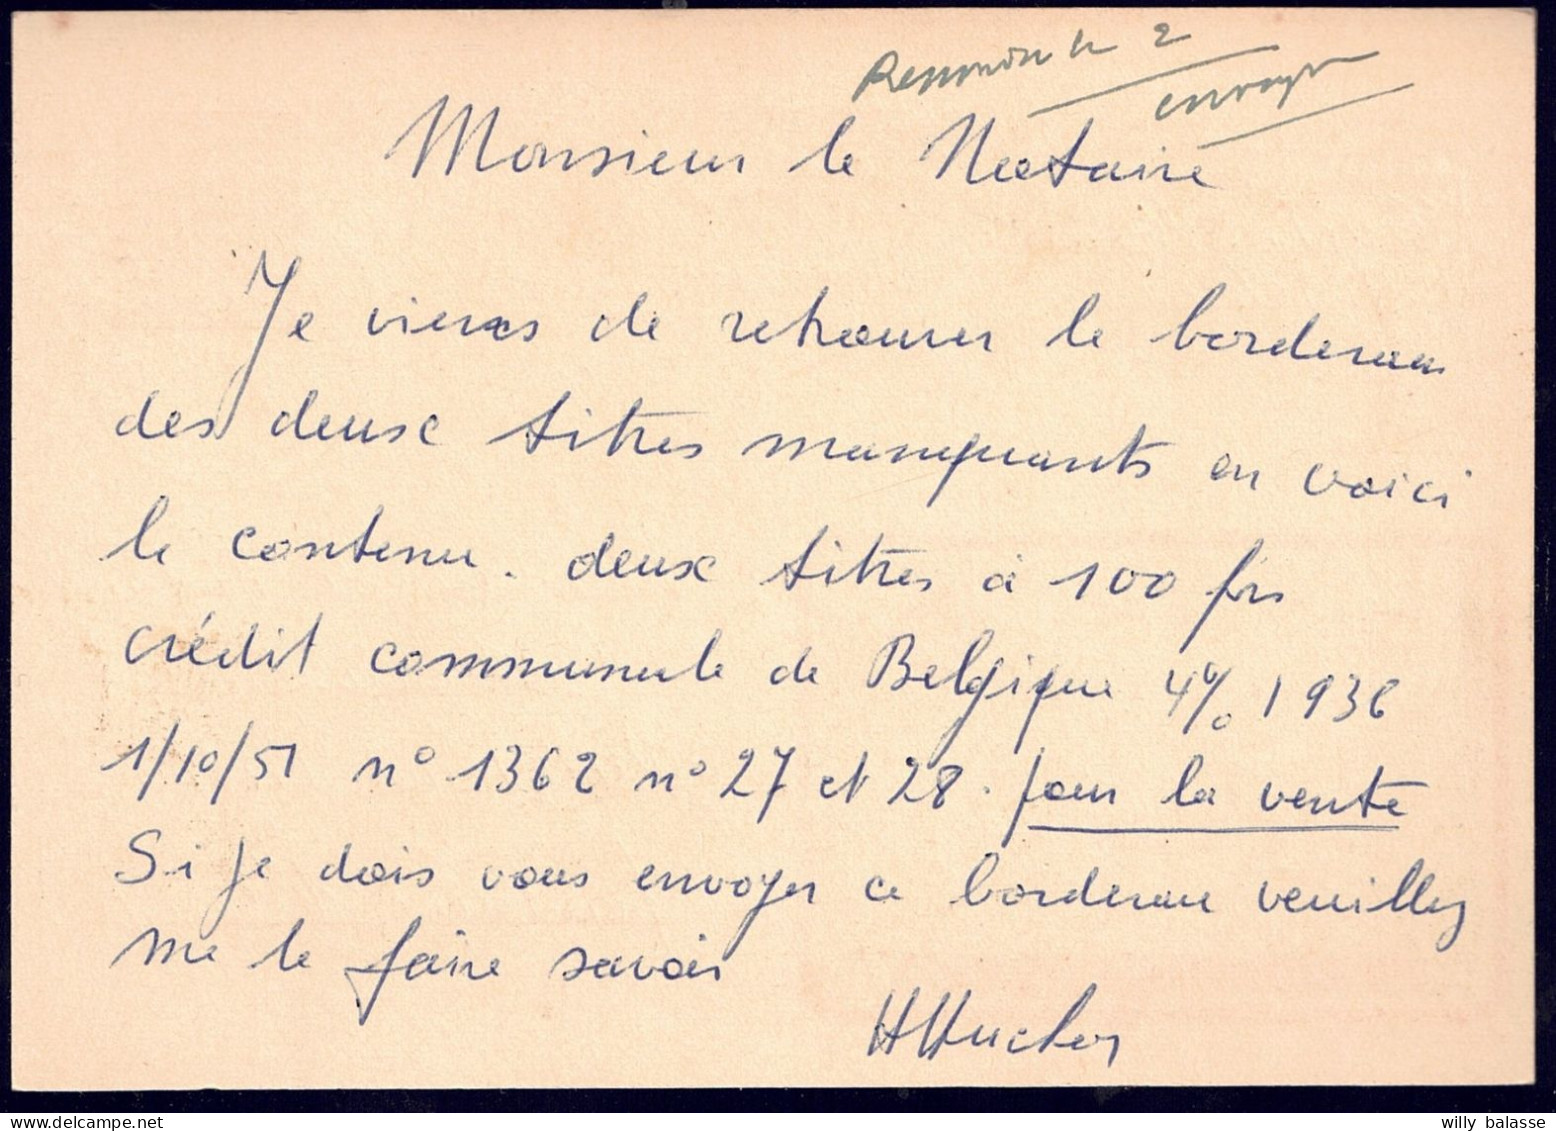 2
envoyer
Monsieur le Notaire
Je viens de retrouver le bordereau
des deux titres manquants en voici
le contenu. deux titres à 100 frs
crédit communale de Belgique 4% 1936
1/10/51 n° 1362 n° 27 et 28. pour la vente
Si je dois vous envoyer ce bordereau veuillez
me le faire savoir
willy balasse